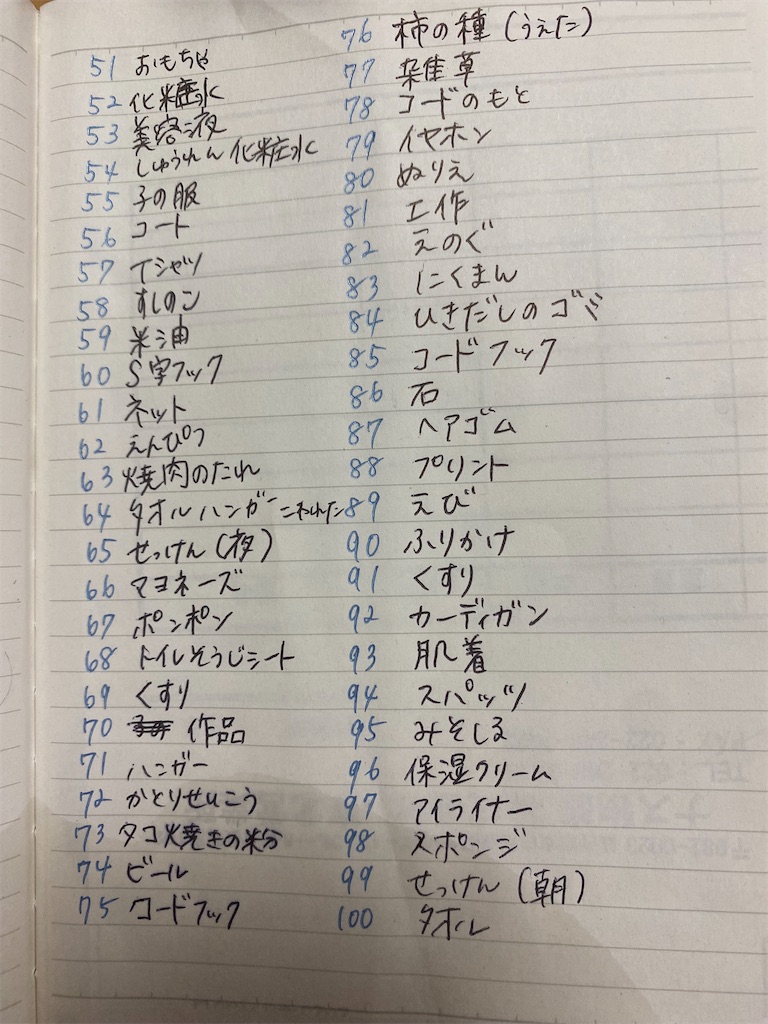 51 おもちゃ
52 化粧水
53 美容液
54 しゅうれん化粧水
55 子の服
56 コート
57 Tシャツ
58 すしのこ
59 米油
60 S字フック
61 ネット
62 えんぴつ
63 焼肉のたれ
64 タオルハンガーこわれた
65 せっけん(夜)
66 マヨネーズ
67 ポンポン
68 トイレそうじシート
69 くすり
70 作品
71 ハンガー
72 かとりせんこう
73 タコ焼きの粉
74 ビール
75 コードフック
76 柿の種(うえた)
77 雑草
78 コードのもと
79 イヤホン
80 ぬりえ
81 工作
82 えのぐ
83 にくまん
84 ひきだしのゴミ
85 コードフック
86 石
87 ヘアゴム
88 プリント
89 えび
90 ふりかけ
91 くすり
92 カーディガン
93 肌着
94 スパッツ
95 みそしる
96 保湿クリーム
97 アイライナー
98 スポンジ
99 せっけん(朝)
100 タオル